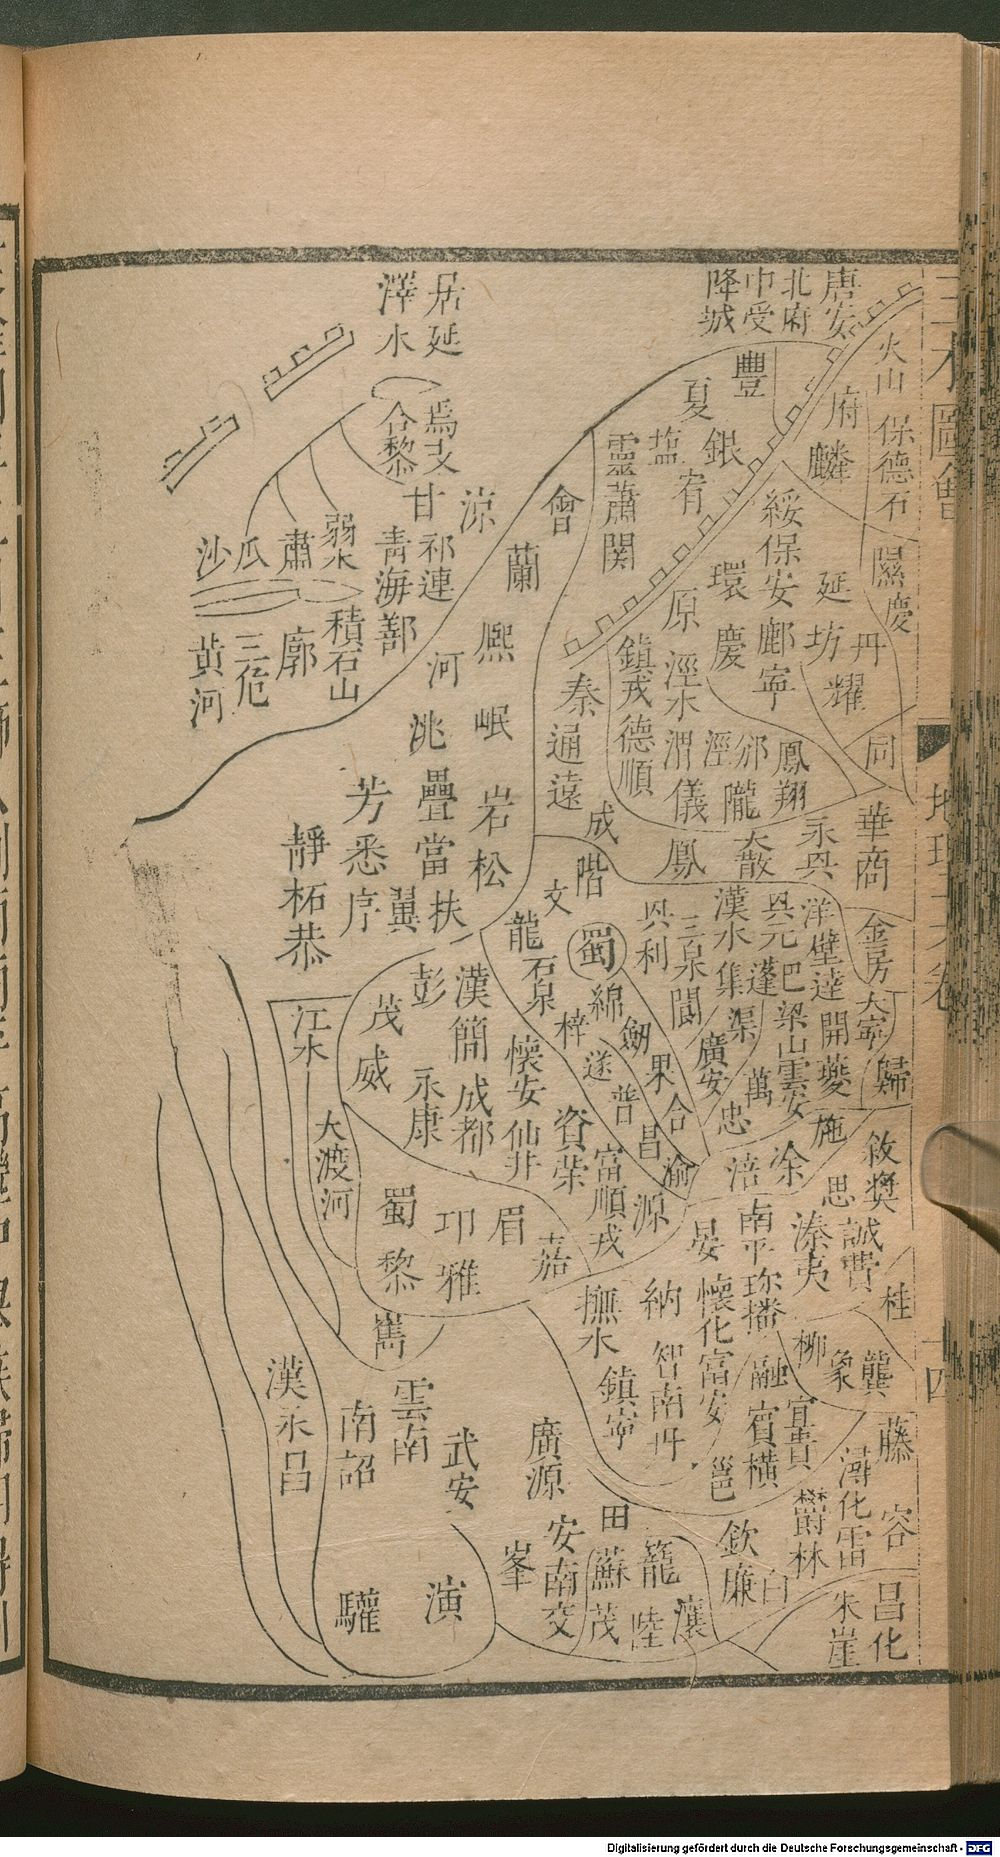 唐安
北府
中受
降城
居延
澤水
火山
保德
石
隰
慶
府
麟
豐
夏
銀
塩
宥
靈
蕭関
綏
保安
延
丹
坊
鄜
寧
環
慶
耀
同
原
涇水
鎮戎
德順
渭
儀
涇
邠
隴
鳳翔
會
蘭
涼
甘
祁連
青海
鄯
合黎
焉支
弱水
肅
瓜
沙
積石山
廓
三危
黄河
熙
河
岷
洮
秦
通遠
疊
當
岩
松
芳
悉
序
翼
扶
靜
柘
恭
成
階
文
龍
鳳
大散
永興
華
商
金
房
大寧
歸
洋
壁
逹
開
夔
興元
巴
梁山
雲安
漢水
集
蓬
渠
三泉
興
利
閬
廣安
萬
忠
蜀
石泉
綿
劒
梓
遂
果
普
合
昌
渝
彭
漢
簡
茂
威
永康
成都
懷安
仙井
資
榮
富順
戎
源
江水
大渡河
蜀
卭
眉
嘉
黎
雅
嶲
施
涪
涂
思
敘
獎
誠
費
溱
夷
南平
珍
播
晏
納
懷化
富安
智
南丹
撫水
鎮寧
桂
柳
象
龔
融
宜
貴
賓
橫
邕
藤
容
潯
化
雷
欝林
漢
永昌
南詔
雲南
武安
廣源
安南
交
峯
田
蘇
茂
籠
陸
瀼
欽
廉
白
朱崖
昌化
驩
演
三才圖會
地理三卷
十四
Digitalisierung gefördert durch die Deutsche Forschungsgemeinschaft - DFG